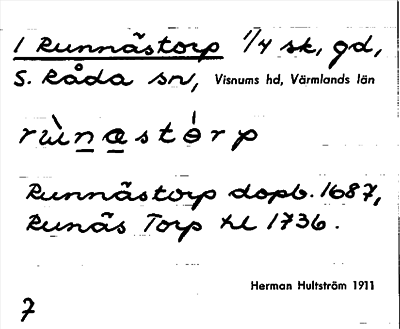 1 Runnästorp 1/4 sk, gd,
S. Råda sn, Visnums hd, Värmlands län
rùnastórp
Runnästorp dopb. 1687,
Runäs Torp hl 1736.
Herman Hultström 1911
7